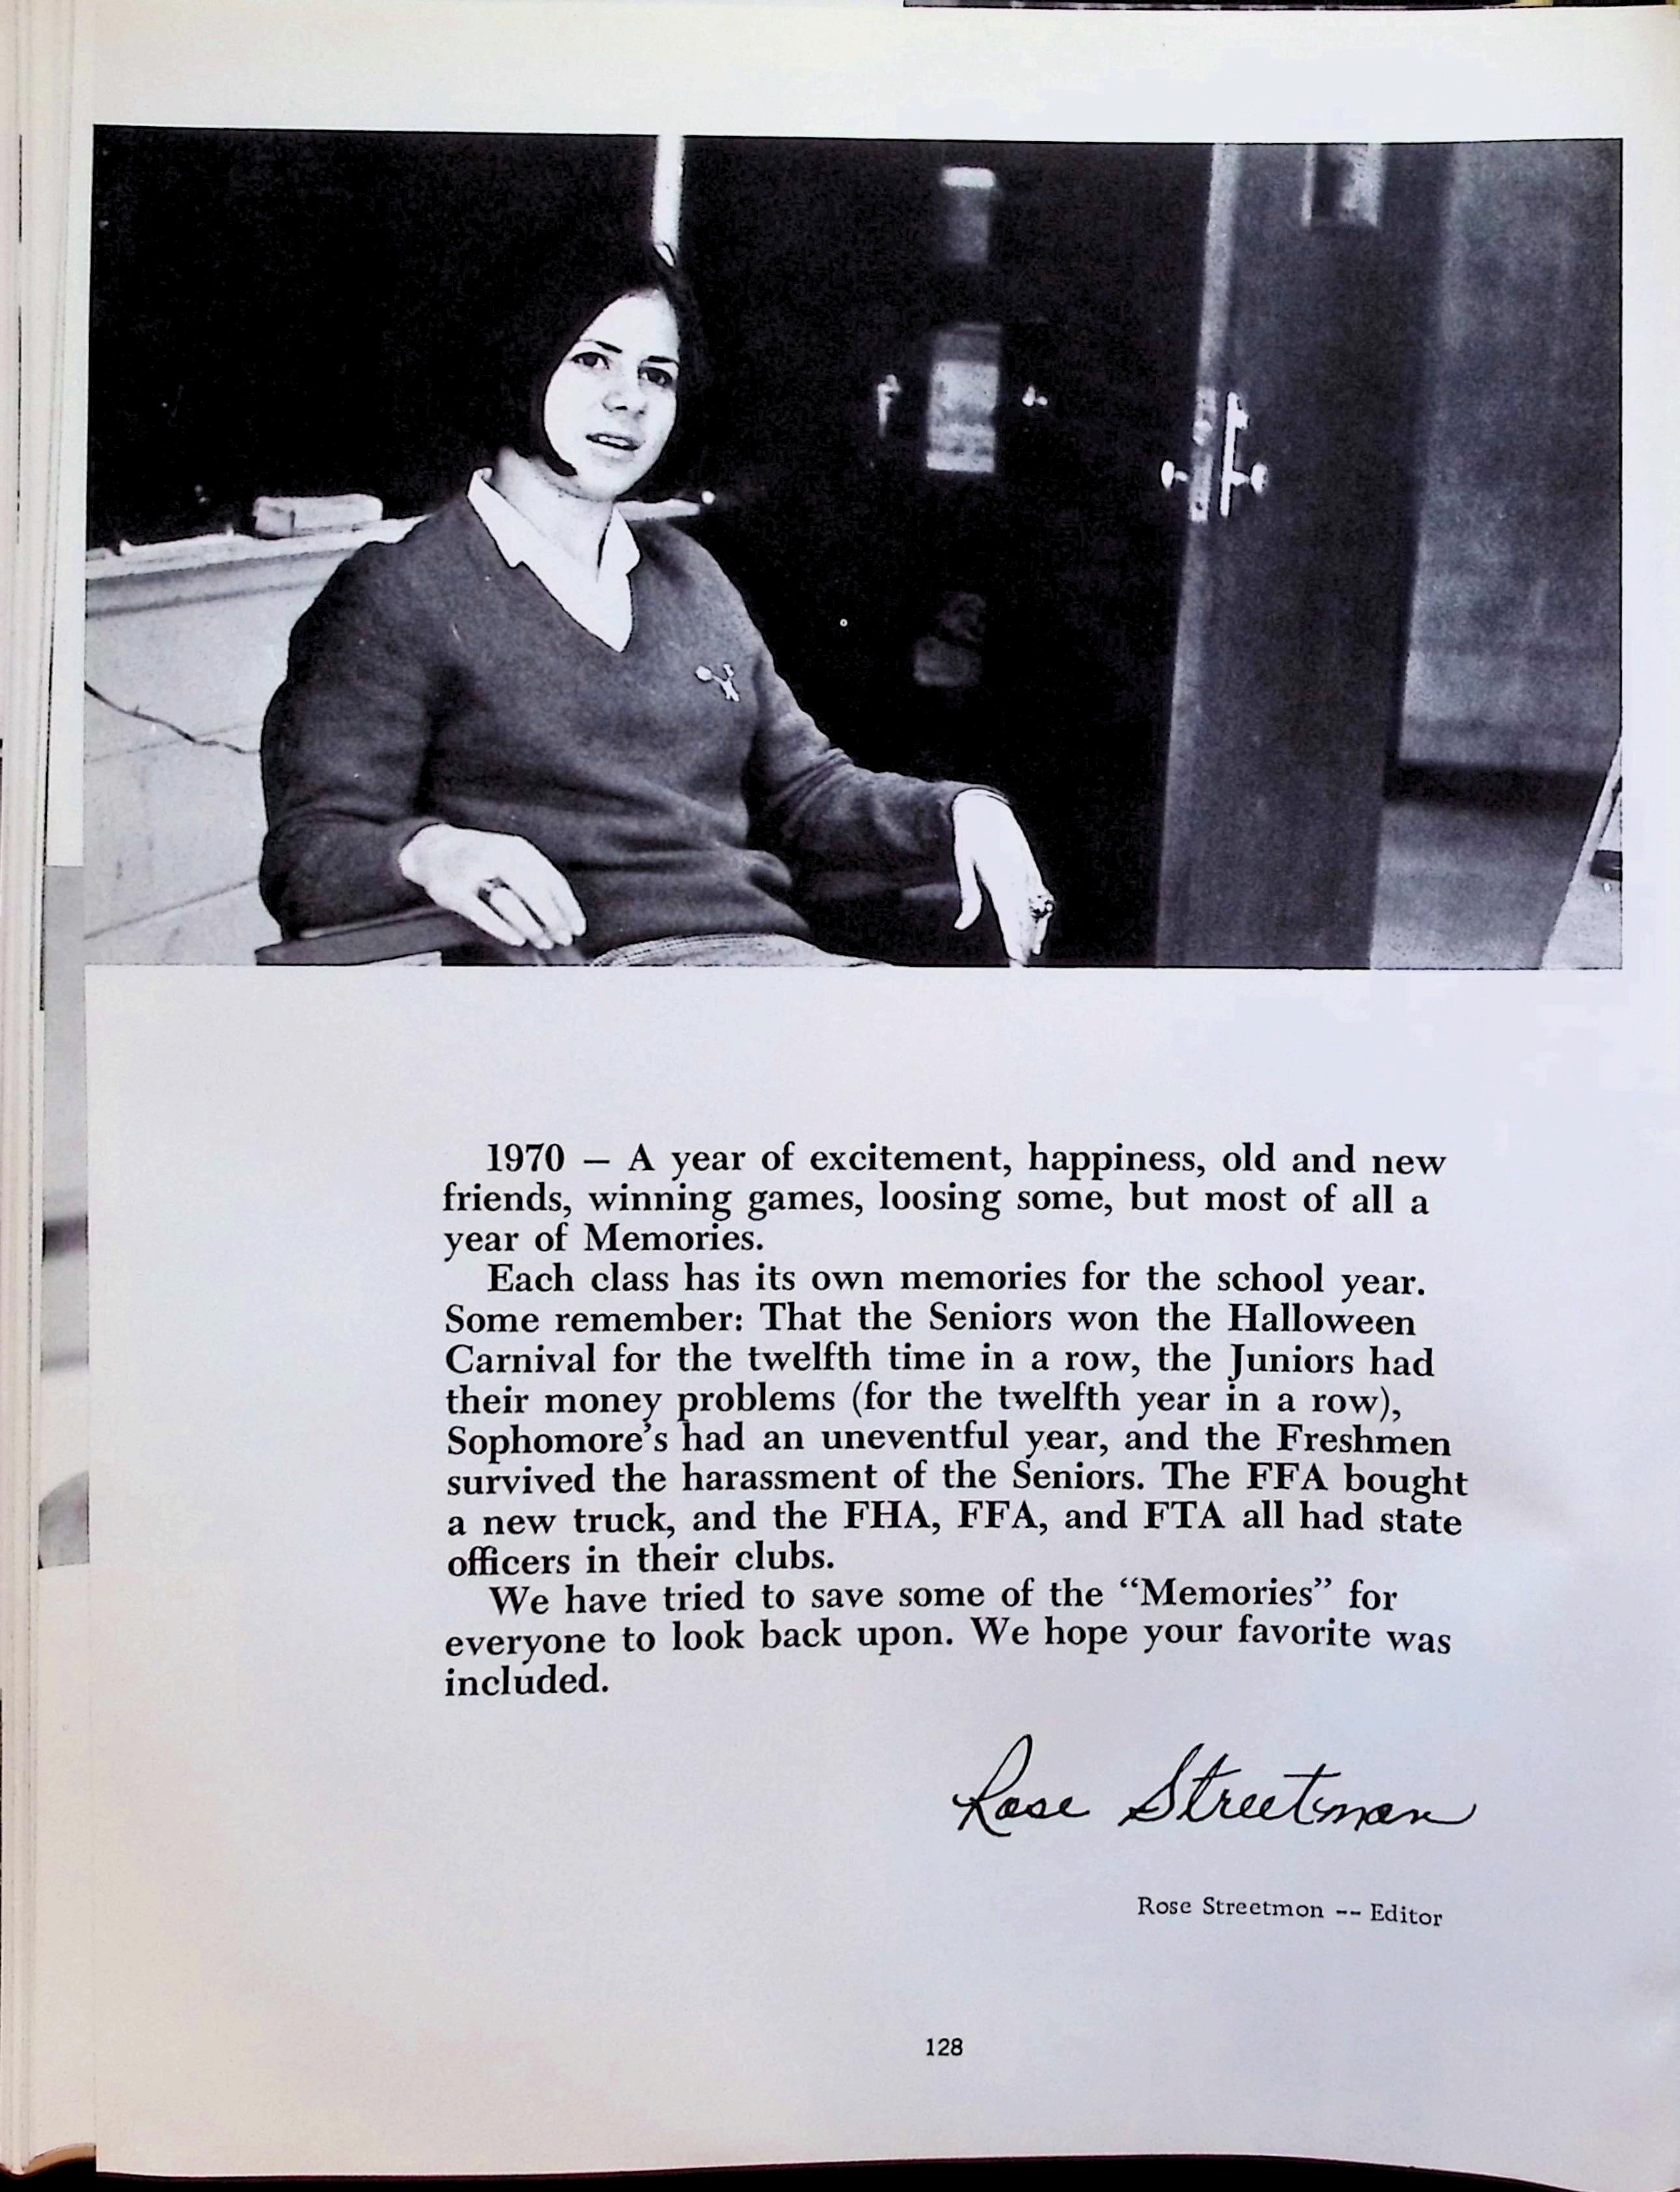 1970 — A year of excitement, happiness, old and new
friends, winning games, loosing some, but most of all a
year of Memories.
Each class has its own memories for the school year.
Some remember: That the Seniors won the Halloween
Carnival for the twelfth time in a row, the Juniors had
their money problems (for the twelfth year in a row),
Sophomore's had an uneventful year, and the Freshmen
survived the harassment of the Seniors. The FFA bought
a new truck, and the FHA, FFA, and FTA all had state
officers in their clubs.
We have tried to save some of the “Memories” for
everyone to look back upon. We hope your favorite was
included.
Rose Streetmon
Rose Streetmon -- Editor
128